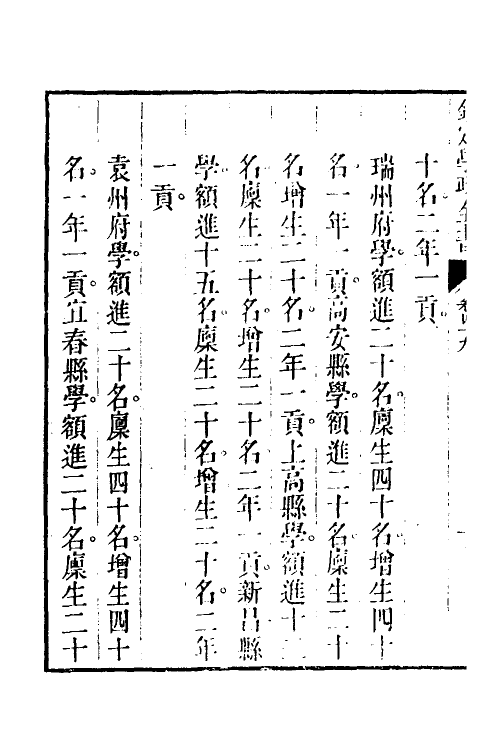 欽定學政全書 卷四十九
十名二年一貢
瑞州府學額進二十名廩生四十名增生四十
名一年一貢高安縣學額進二十名廩生二十
名增生二十名二年一貢上高縣學額進十二
名廩生二十名增生二十名二年一貢新昌縣
學額進十五名廩生二十名增生二十名二年
一貢
袁州府學額進二十名廩生四十名增生四十
名一年一貢宜春縣學額進二十名廩生二十